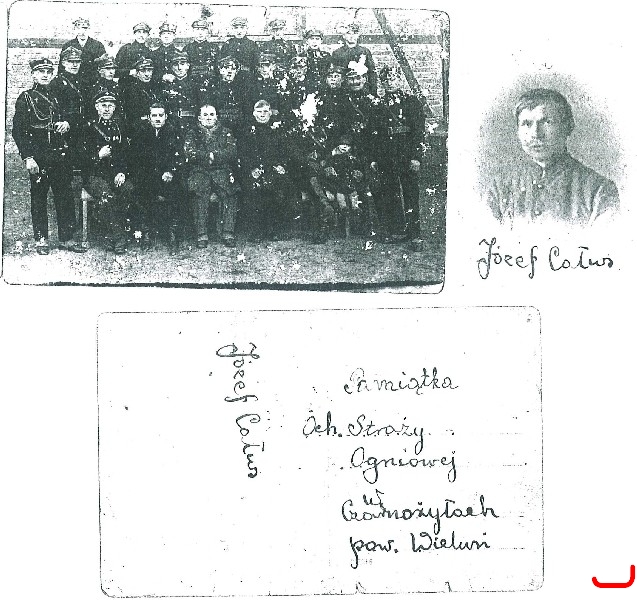 Józef Całus
Józef Całus
Pamiątka
Och. Straży
Ogniowej
w
Czarnożyłach
pow. Wieluń